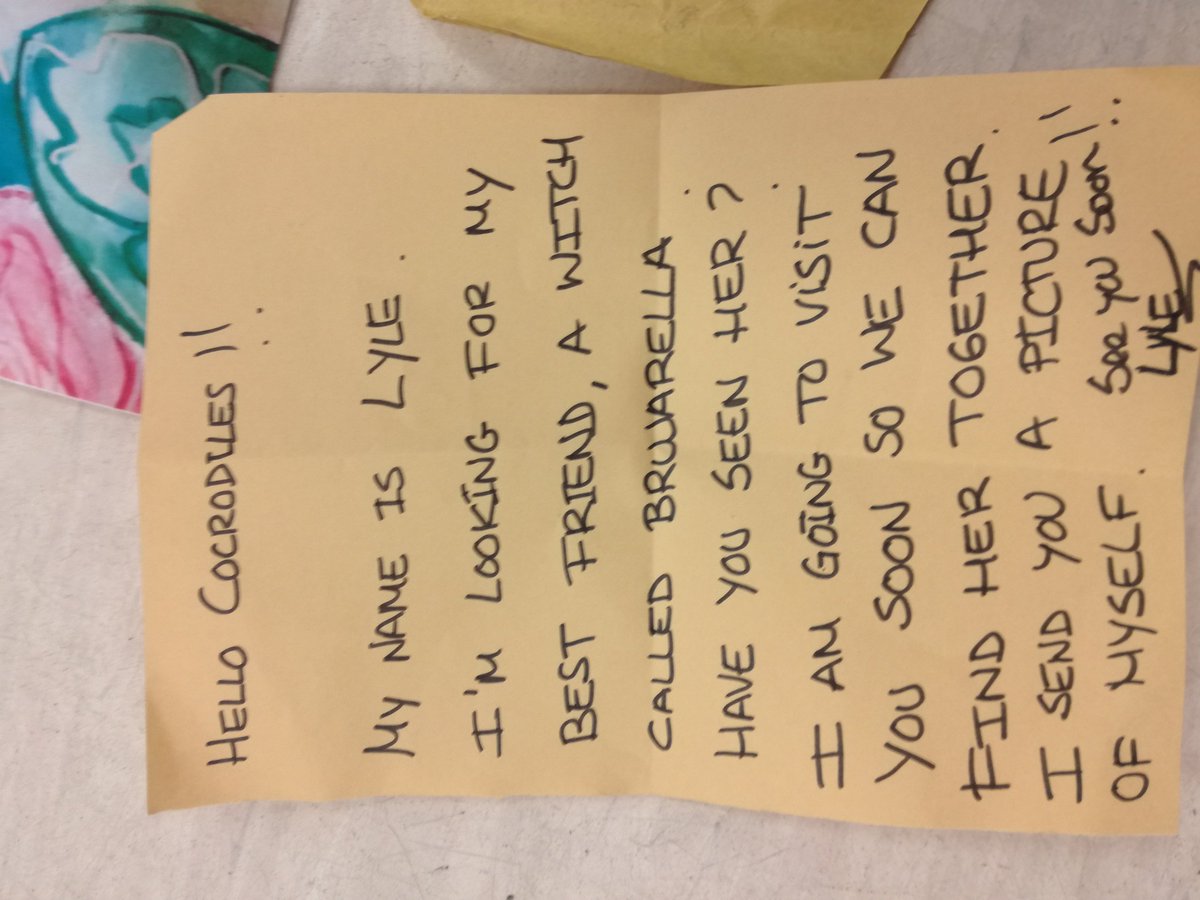 HELLO COCRODILES !!
MY NAME IS LYLE.
I'M LOOKING FOR MY
BEST FRIEND, A WITCH
CALLED BRUJARELLA
HAVE YOU SEEN HER?
I AM GOING TO VISIT
YOU SOON SO WE CAN
FIND HER TOGETHER.
I SEND YOU A PICTURE
OF MYSELF. See you soon!!
LYLE